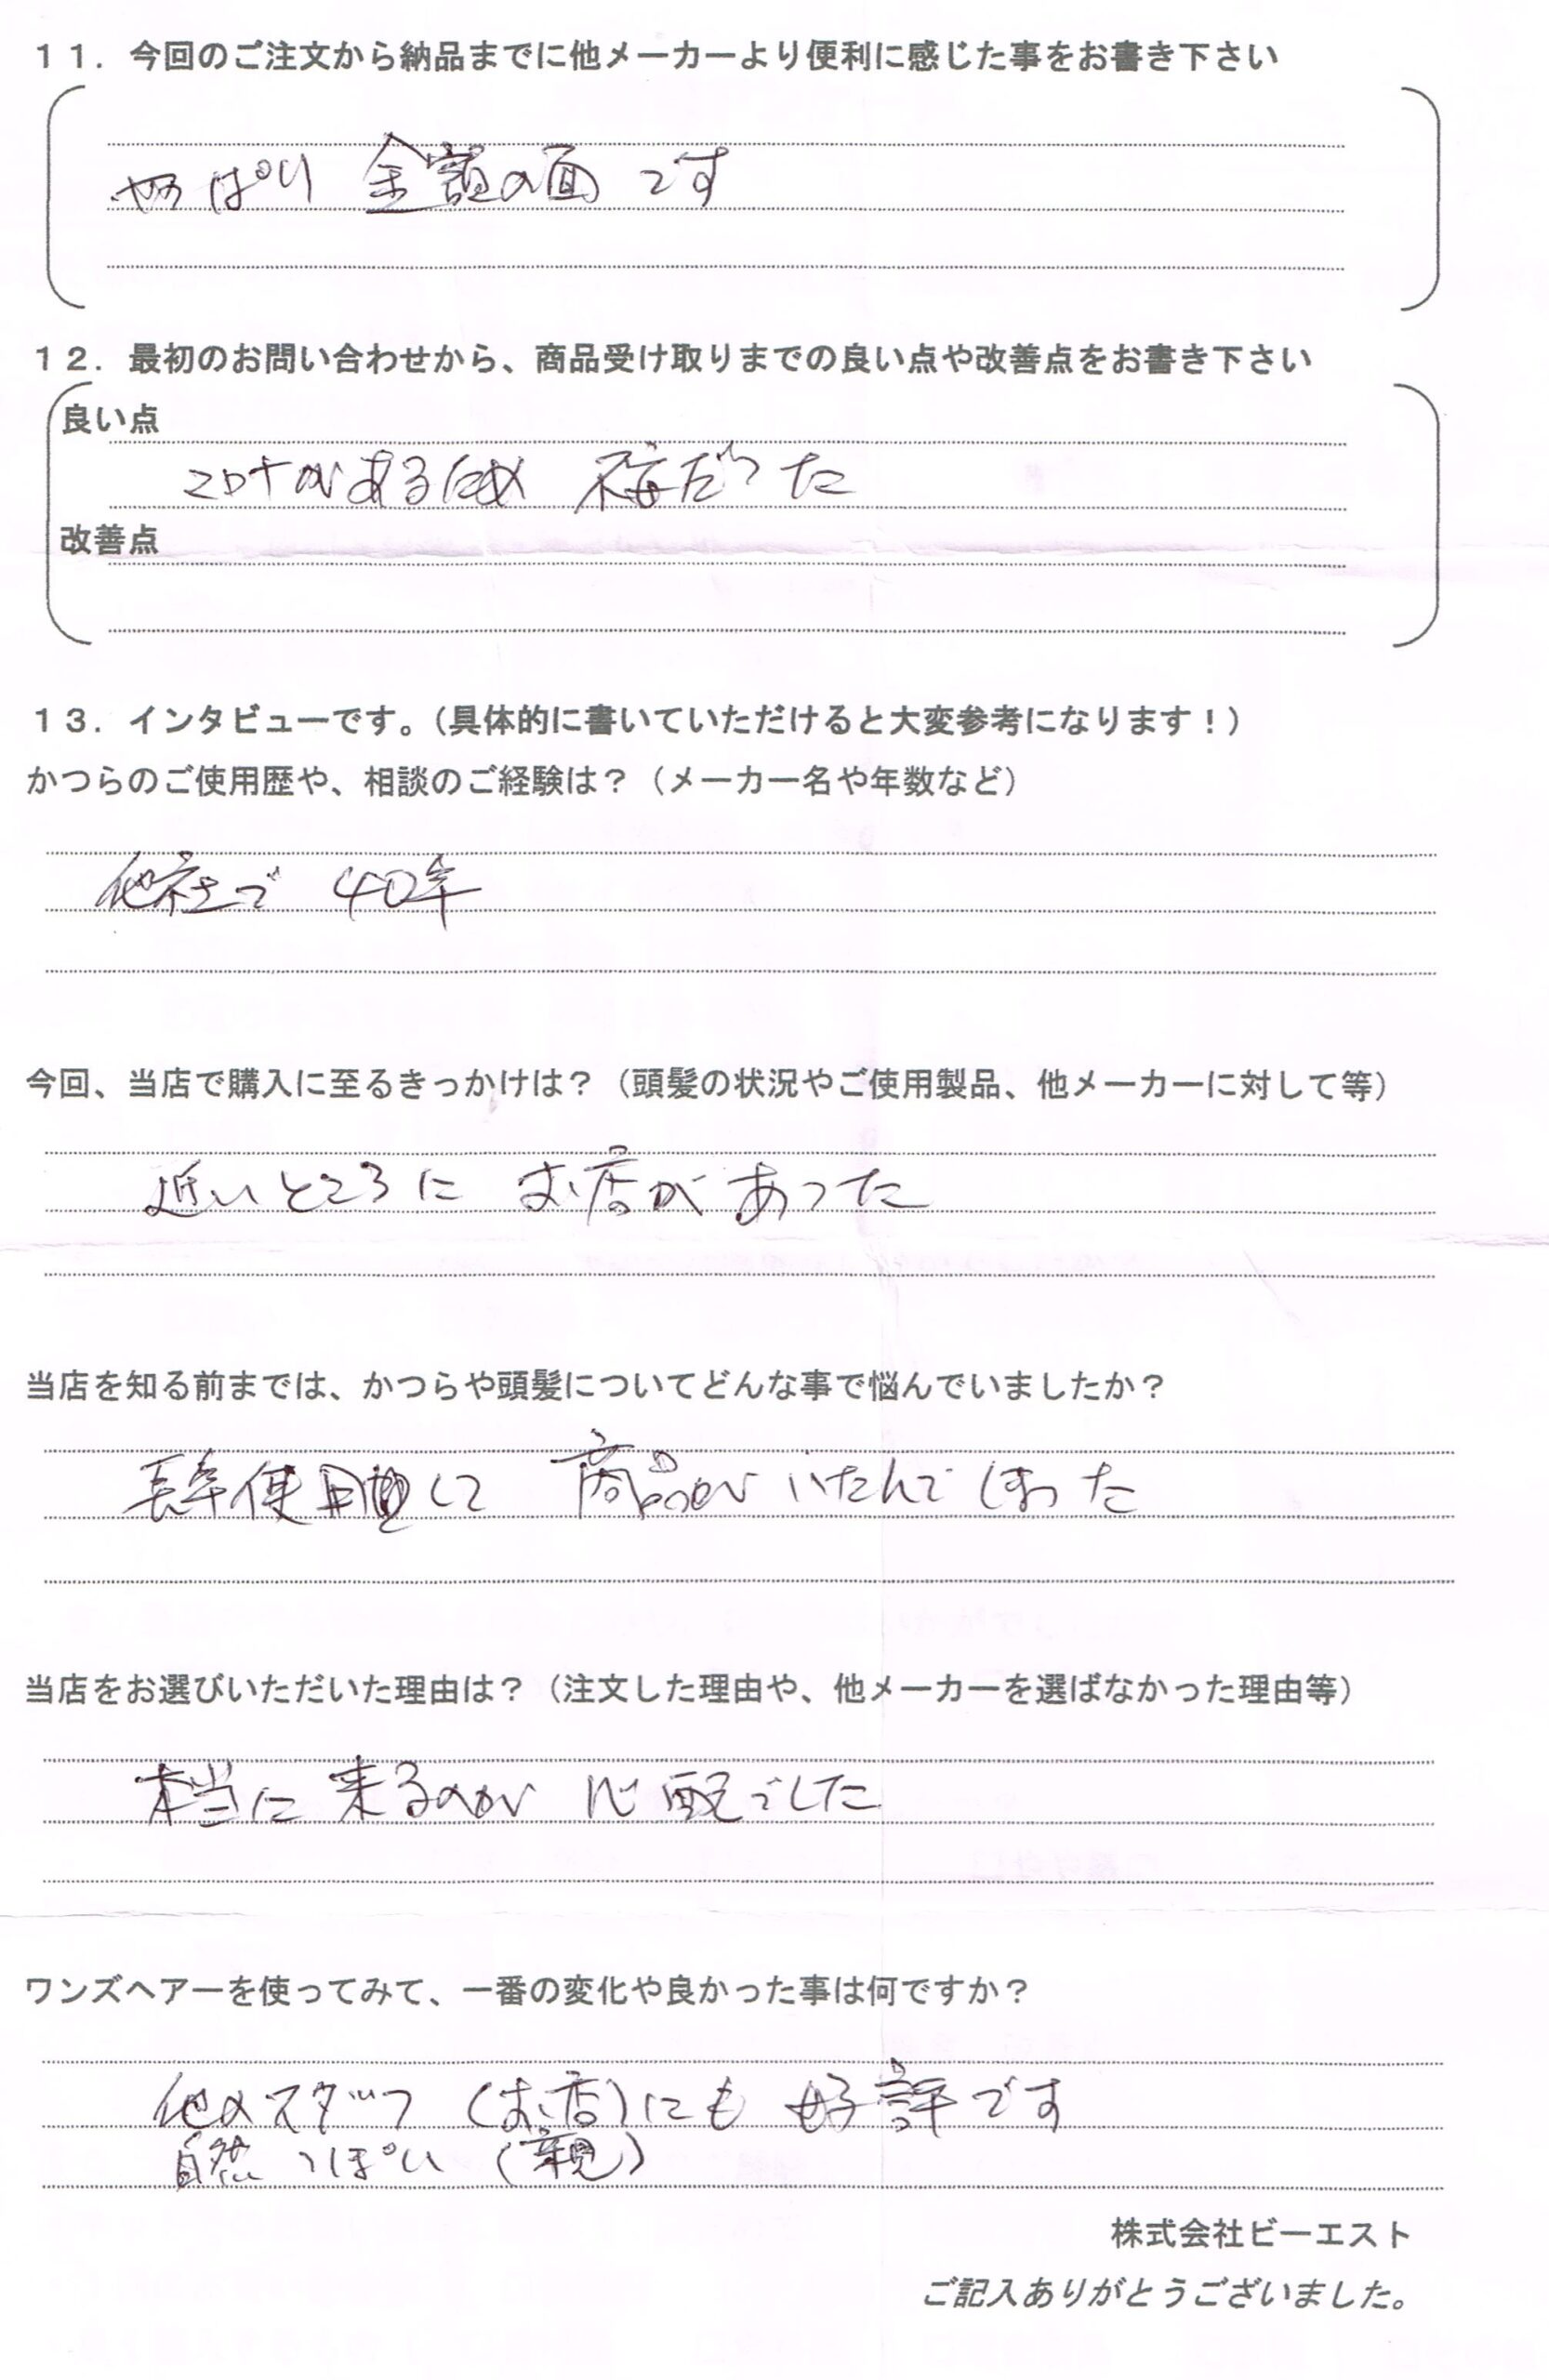 １１．今回のご注文から納品までに他メーカーより便利に感じた事をお書き下さい
やっぱり 金額の面です
１２．最初のお問い合わせから、商品受け取りまでの良い点や改善点をお書き下さい
良い点
コロナがあるため 不安だった
改善点
１３．インタビューです。（具体的に書いていただけると大変参考になります！）
かつらのご使用歴や、相談のご経験は？（メーカー名や年数など）
他社で 40年
今回、当店で購入に至るきっかけは？（頭髪の状況やご使用製品、他メーカーに対して等）
近いところに お店があった
当店を知る前までは、かつらや頭髪についてどんな事で悩んでいましたか？
長年使用して 商品がいたんでしまった
当店をお選びいただいた理由は？（注文した理由や、他メーカーを選ばなかった理由等）
本当に来るのが 心配でした
ワンズヘアーを使ってみて、一番の変化や良かった事は何ですか？
他のスタッフ（お店）にも 好評です
自然っぽい（親）
株式会社ビーエスト
ご記入ありがとうございました。